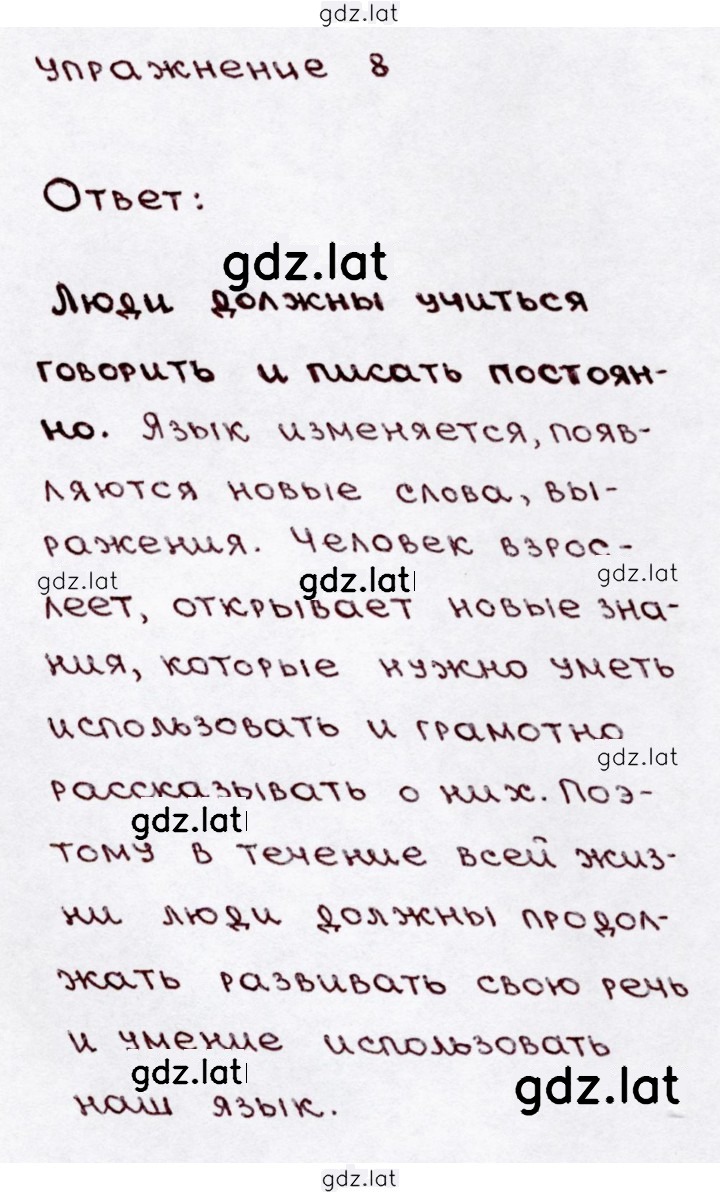 gdz.lat
упражнение 8
Ответ:
gdz.lat
Люди должны учиться
говорить и писать постоян-
но. Язык изменяется, появ-
ляются новые слова, вы-
ражения. Человек взрос-
gdz.lat gdz.lat gdz.lat
леет, открывает новые зна-
ния, которые нужно уметь
использовать и грамотно
gdz.lat
рассказывать о них. Поэ-
gdz.lat
тому в течение всей жиз-
ни люди должны продол-
жать развивать свою речь
и умение использовать
gdz.lat gdz.lat
наш язык.
gdz.lat